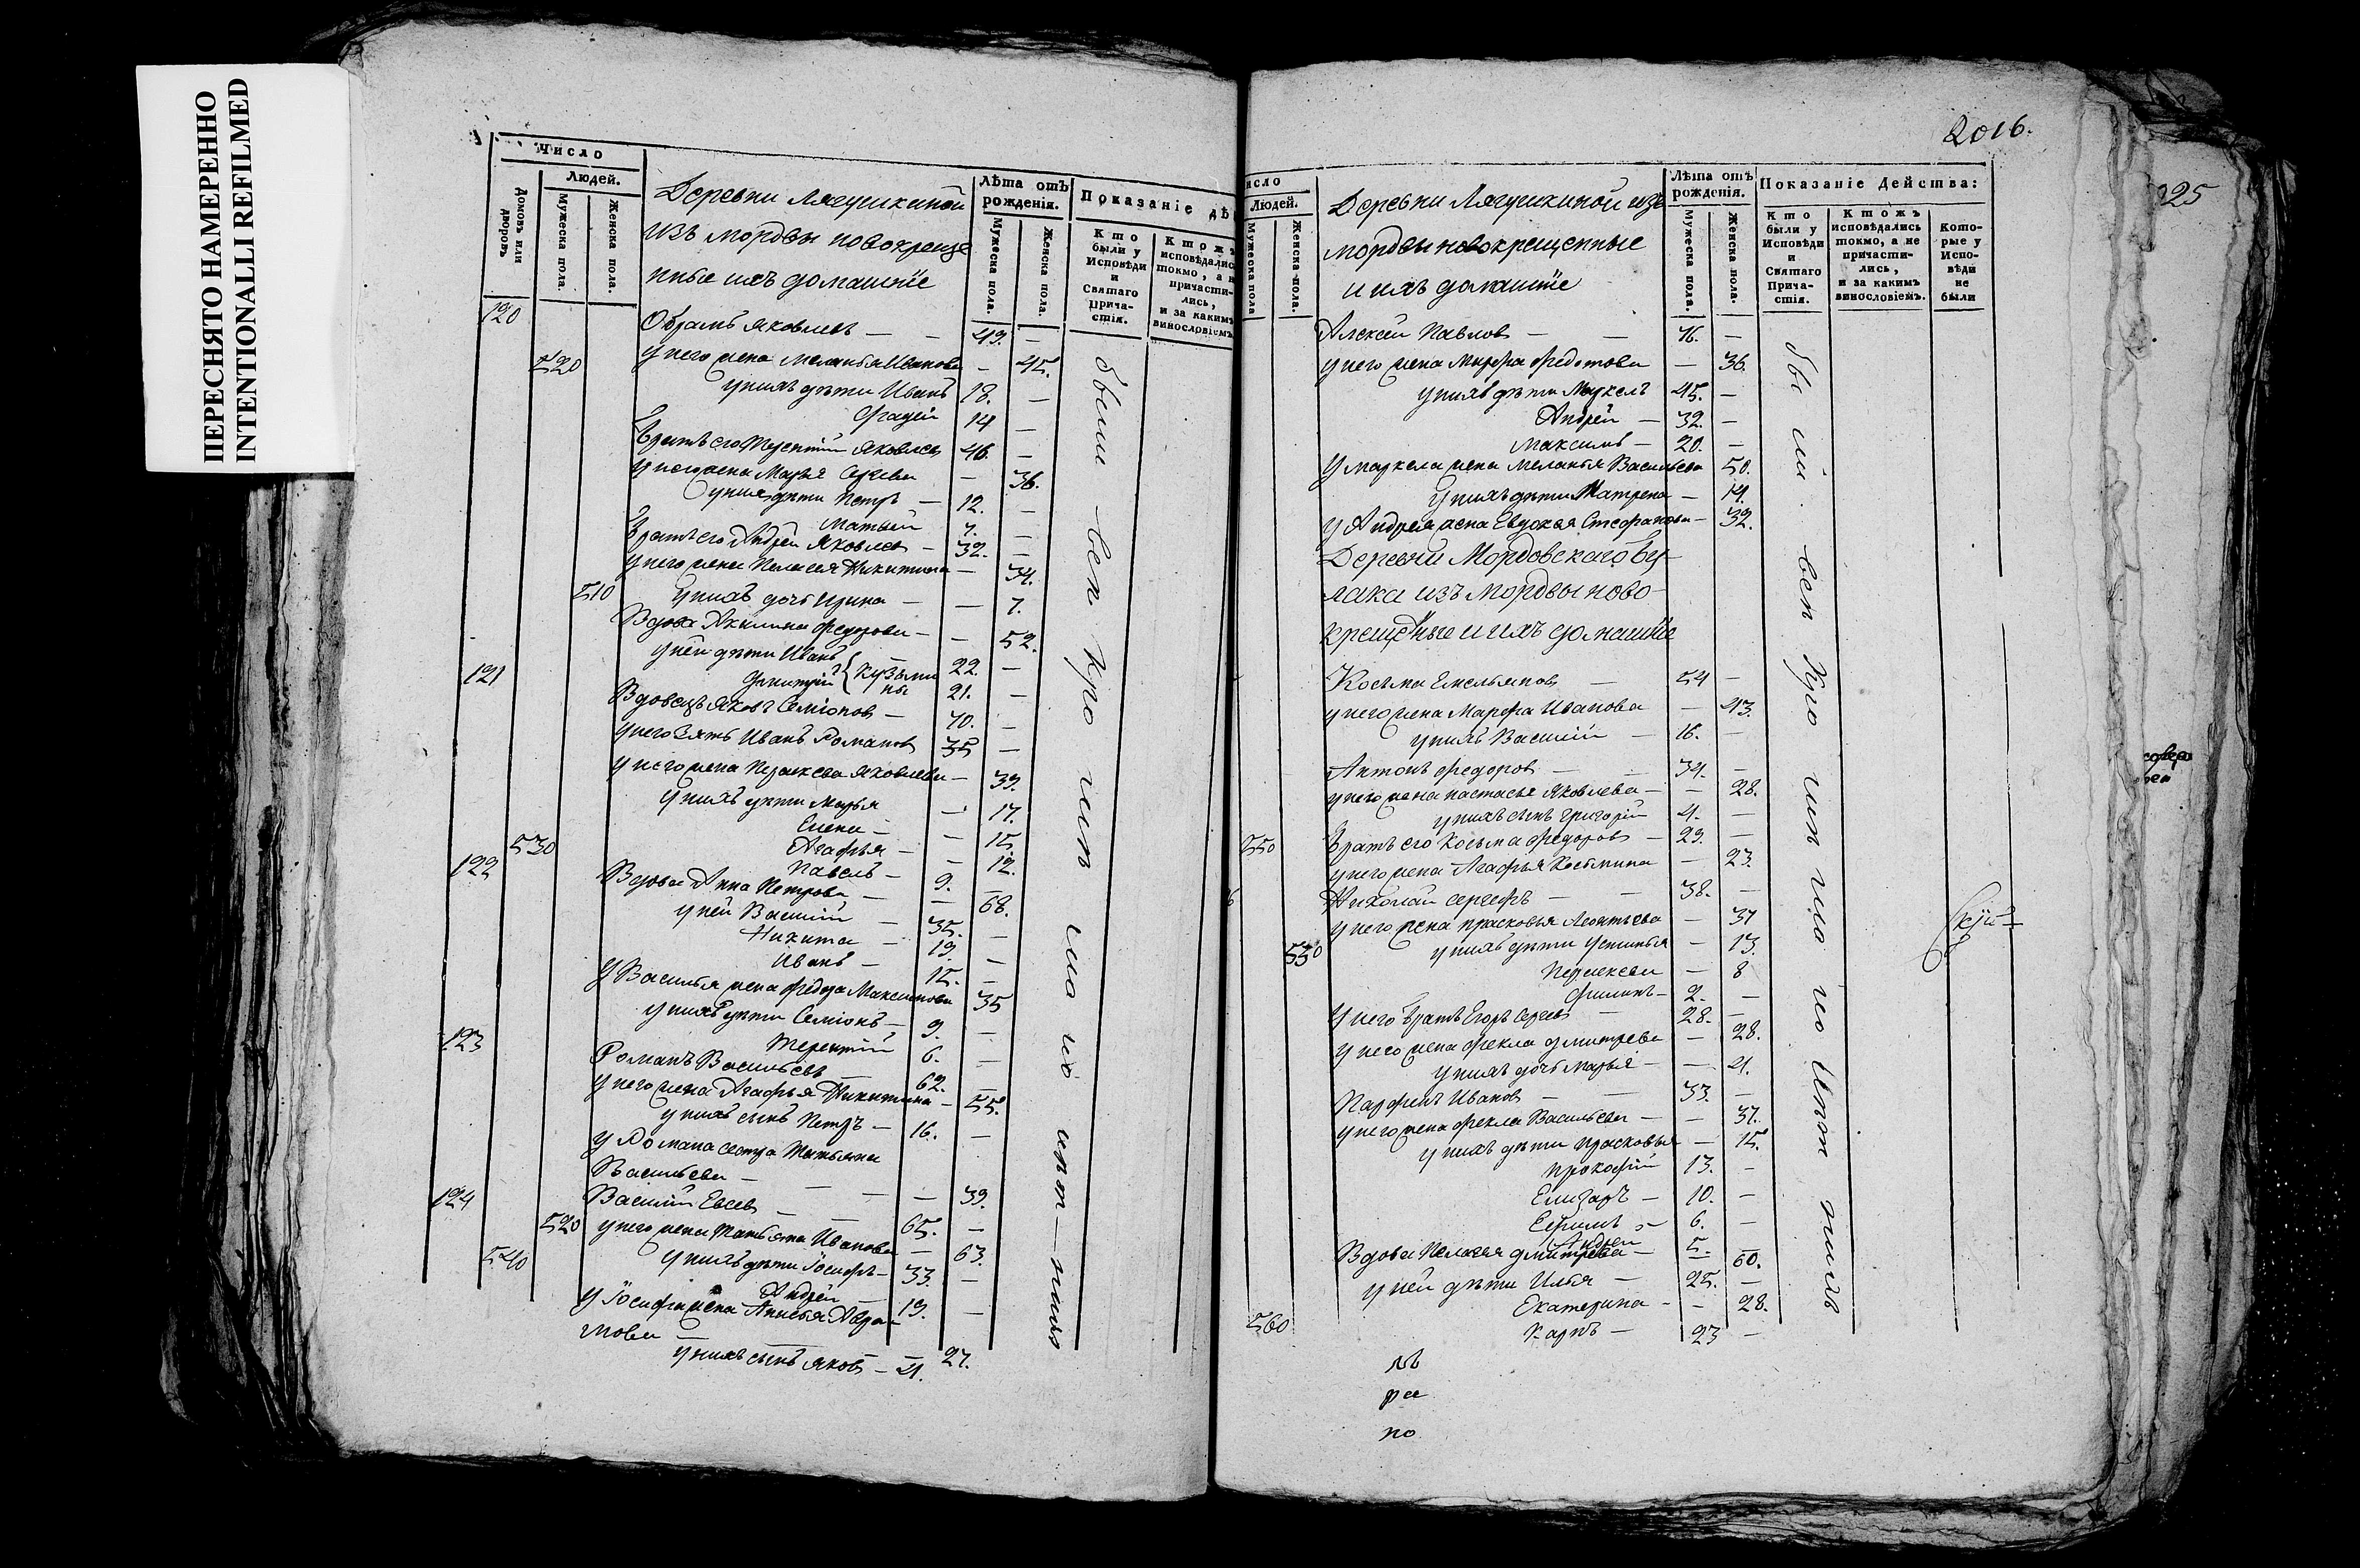 ПЕРЕСНЯТО НАМЕРЕННО
INTENTIONALLI REFILMED
Число
Домовъ или дворовъ
Людей.
Мужеска пола.
Женска пола.
Деревни Лягушкиной
изъ мордвы новокреще
нные ихъ домашнїе
Лѣта отъ рожденія.
Мужеска пола.
Женска пола.
Показаніе дѣ
Кто были у Исповѣди и Святаго Прича-стія.
Ктожъ исповѣдалис токмо, а н причасти-лись, и за каким винословіемъ
120
Обрамъ Яковлевъ — 49. —
520 У него жена Меланья Иванова — 45.
у нихъ дѣти Иванъ 18. —
Фадей 14 —
Братъ его Терентїй Яковлевъ 46. —
У него жена Марья Сергева — 36.
у них дѣти Петръ — 12. —
Матвей 7. —
Братъ его Андрей Яковлев — 32. —
У него жена Пелагея Никитина — 34.
510 у нихъ дочь Ирина — — 7.
Вдова Акилина Федорова — — 52.
у ней дѣти Иванъ 22. —
Дмитрїй Кузьмины 21. —
121 Вдовецъ Яковъ Семіонов — 70. —
у него зять Иванъ Романов 35 —
У него жена Пераскева Яковлева — 39.
у нихъ дѣти Марья — 17.
Елена — — 15.
530 Агафья — — 12.
Павелъ — 9. —
122 Вдова Анна Петрова — — 68.
у ней Василїй — 35. —
Никита — 19. —
Иванъ — 15. —
У Василья жена Федора Максимова 35
у нихъ дѣти Семіонъ — 9. —
Терентїй 6. —
123 Романъ Васильевъ 62. —
У него жена Агафья Никитина — 55.
у нихъ сынъ Петръ — 16. —
У Романа сестра Татьяна
Васильева — — 39.
124 Василїй Евсев — 65. —
520 у него жена Татьяна Иванова — 63.
540 У нихъ дѣти Іосифъ — 33. —
Андрей 19. —
У Іосифа жена Анисья Абра-
мова — 27.
у нихъ сынъ Яков — 4.
были
2016.
325
исло
Людей.
Мужеска пола
Женска пола.
Деревни Лягушкиной изъ
мордвы новокрещенные
и ихъ домашнїе
Лѣта отъ рожденія.
Мужеска пола.
Женска пола.
Показаніе Действа:
Кто были у Исповѣди и Святаго Прича-стія.
Ктожъ исповѣдались токмо, а не причасти-лись, и за какимъ винословіемъ.
Кото-рые у Испо-вѣди не были
Алексѣй Павлов — 76. —
у него жена Марфа Федотова — 36.
у нихъ дѣти Маркелъ 45. —
Андрей — 32. —
Максимъ — 20. —
У Маркела жена Меланья Васильева 50.
У нихъ дѣти Матрена — 14.
У Андрея жена Евдокея Стефанова — 32.
Деревни Мордовскаго Бу-
лака изъ мордвы ново-
крещеные и ихъ домашнїе
Косьма Емельянов — 54 —
у него жена Марфа Иванова — 43.
у нихъ Василїй — 16. —
Антонъ Федоров — 34. —
у него жена Настасья Яковлева — — 28.
у нихъ сынъ Григорїй 4. —
550 Братъ его Косьма Федоров — 29. —
у него жена Агафья Костмина — 23.
Николай Сергеевъ — 38. —
у него жена Прасковья Леонтьева — 37
530 у нихъ дѣти Устинья — 13.
Пераскева — 8
Филипъ — 2. —
У него братъ Егоръ Сергеев — 28. —
У него жена Фекла Дмитрева — 28.
у нихъ дочь Марья — — 4.
Парфенъ Иванов — 33. —
у него жена Фекла Васильева — — 37.
у нихъ дѣти Прасковья — 15.
Прокофїй 13. —
Елизаръ — 10. —
Ефимъ — 6. —
Андрей 5. —
Вдова Пелагея Дмитрева — 60.
у ней дѣти Илья — 25. —
Екатерина — — 28.
560 Карпъ — 23 —
бы ли